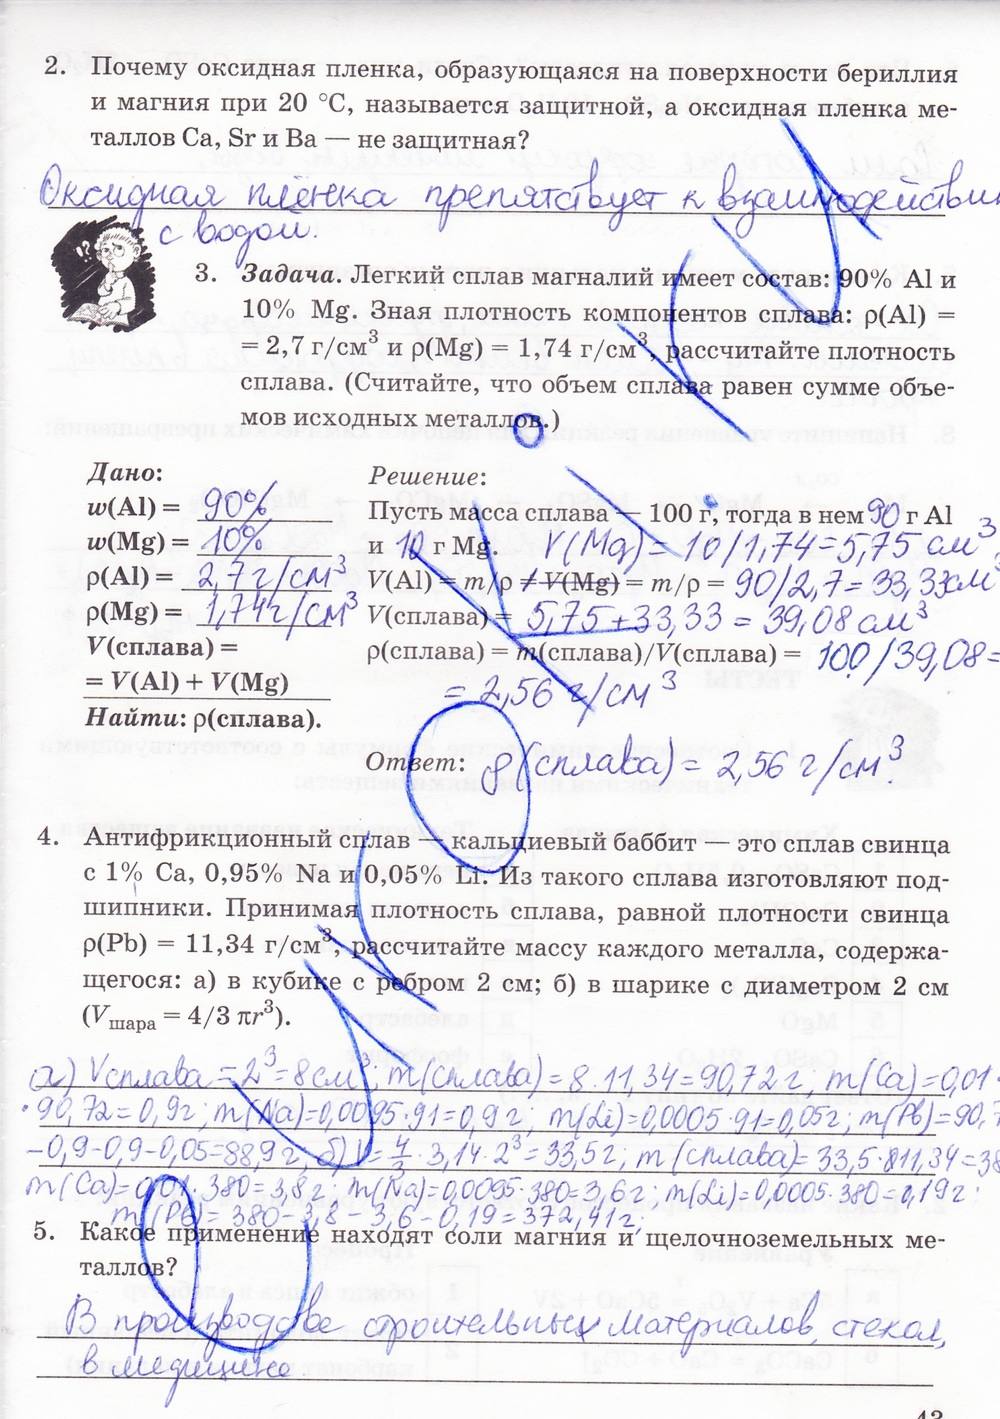 2. Почему оксидная пленка, образующаяся на поверхности бериллия
и магния при 20 °C, называется защитной, а оксидная пленка ме-
таллов Ca, Sr и Ba — не защитная?
Оксидная плёнка препятствует к взаимодействи
с водой.
3. Задача. Легкий сплав магналий имеет состав: 90% Al и
10% Mg. Зная плотность компонентов сплава: ρ(Al) =
= 2,7 г/см³ и ρ(Mg) = 1,74 г/см³, рассчитайте плотность
сплава. (Считайте, что объем сплава равен сумме объе-
мов исходных металлов.)
Дано:
w(Al) = 90%
w(Mg) = 10%
ρ(Al) = 2,7 г/см³
ρ(Mg) = 1,74 г/см³
V(сплава) =
= V(Al) + V(Mg)
Найти: ρ(сплава).
Решение:
Пусть масса сплава — 100 г, тогда в нем 90 г Al
и 10 г Mg. V(Mg) = 10/1,74 = 5,75 см³
V(Al) = m/ρ + V(Mg) = m/ρ = 90/2,7 = 33,33 см³
V(сплава) = 5,75 + 33,33 = 39,08 см³
ρ(сплава) = m(сплава)/V(сплава) = 100/39,08 =
= 2,56 г/см³
Ответ: ρ(сплава) = 2,56 г/см³.
4. Антифрикционный сплав — кальциевый баббит — это сплав свинца
с 1% Ca, 0,95% Na и 0,05% Li. Из такого сплава изготовляют под-
шипники. Принимая плотность сплава, равной плотности свинца
ρ(Pb) = 11,34 г/см³, рассчитайте массу каждого металла, содержа-
щегося: а) в кубике с ребром 2 см; б) в шарике с диаметром 2 см
(Vшара = 4/3 πr³).
а) Vсплава = 2³ = 8 см³; m(сплава) = 8 · 11,34 = 90,72 г, m(Ca) = 0,01 ·
· 90,72 = 0,9 г; m(Na) = 0,0095 · 91 = 0,9 г; m(Li) = 0,0005 · 91 = 0,05 г; m(Pb) = 90,7
- 0,9 - 0,9 - 0,05 = 88,9 г, б) V = 4/3 · 3,14 · 2³ = 33,5 г; m(сплава) = 33,5 · 11,34 = 38
m(Ca) = 0,01 · 380 = 3,8 г; m(Na) = 0,0095 · 380 = 3,6 г; m(Li) = 0,0005 · 380 = 0,19 г;
m(Pb) = 380 - 3,8 - 3,6 - 0,19 = 372,41 г;
5. Какое применение находят соли магния и щелочноземельных ме-
таллов?
В производстве строительных материалов, стекол,
в медицине.